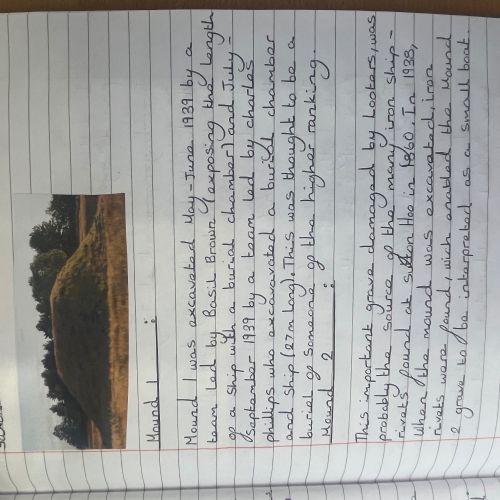 Mound 1 :
Mound 1 was excavated May - June 1939 by a
team led by Basil Brown (exposing the length
of a ship with a burial chamber) and July -
September 1939 by a team led by charles
phillips who excavavated a burial chamber
and ship (27m long). This was thought to be a
burial of someone of the higher ranking.
Mound 2 :
This important grave damaged by looters, was
probably the source of the many iron ship -
rivets found at Sutton Hoo in 1860. In 1938,
when the mound was excavated, iron
rivets were found, wich enabled the Mound
2 grave to be interpreted as a small boat.